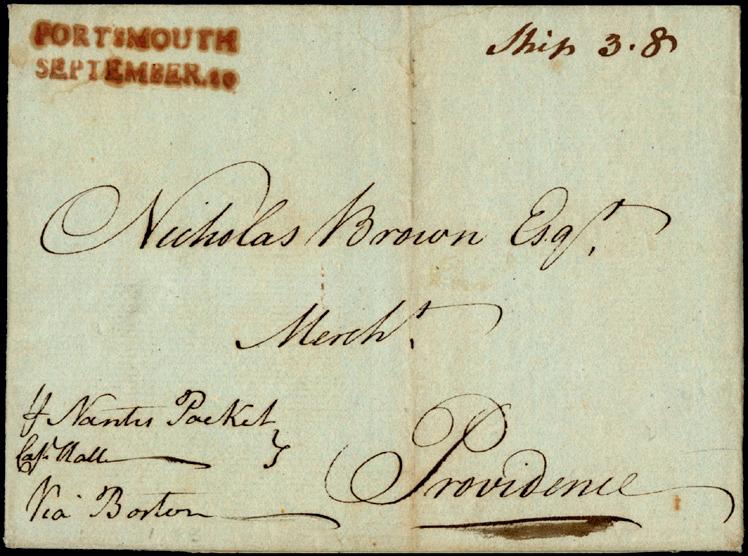 PORTSMOUTH
SEPTEMBER.10
Ship 3.8
Nicholas Brown Esqr.
Mercht.
Providence
Nantes Packet
Capt.
Via Boston